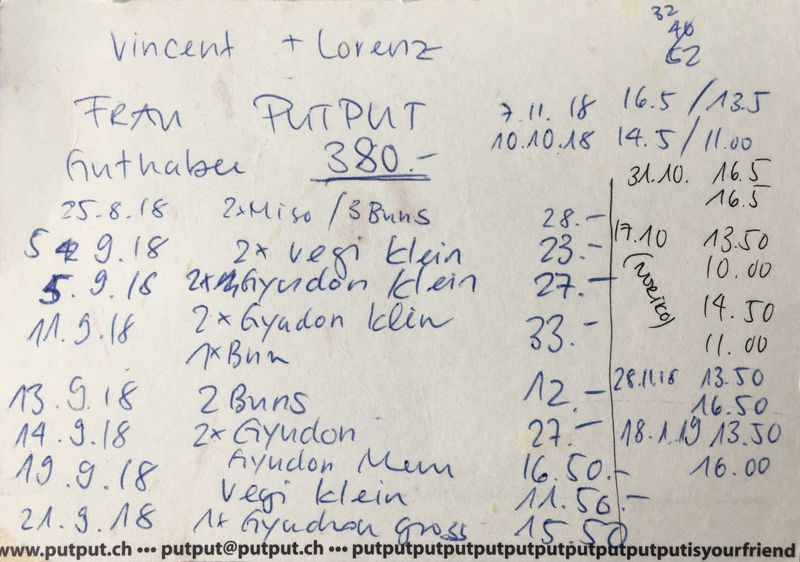 32
46
62
Vincent + Lorenz
FRAU PUTPUT
7.11.18 16.5 / 13.5
10.10.18 14.5 / 11.00
Guthaben 380.-
31.10. 16.5
16.5
25.8.18 2x Miso / 3 Buns 28.-
5 9.18 2x vegi klein 23.-
5.9.18 2x Gyudon klein 27.-
11.9.18 2x Gyudon klin 33.-
1x Bun
13.9.18 2 Buns 12.-
14.9.18 2x Gyudon 27.-
19.9.18 Gyudon Menu 16.50.-
vegi klein 11.50.-
21.9.18 1x Gyudon gross 15.50
17.10 13.50
10.00
(Noriko)
14.50
11.00
28.11.18 13.50
16.50
18.1.19 13.50
16.00
www.putput.ch ••• putput@putput.ch ••• putputputputputputputputputputputisyourfriend